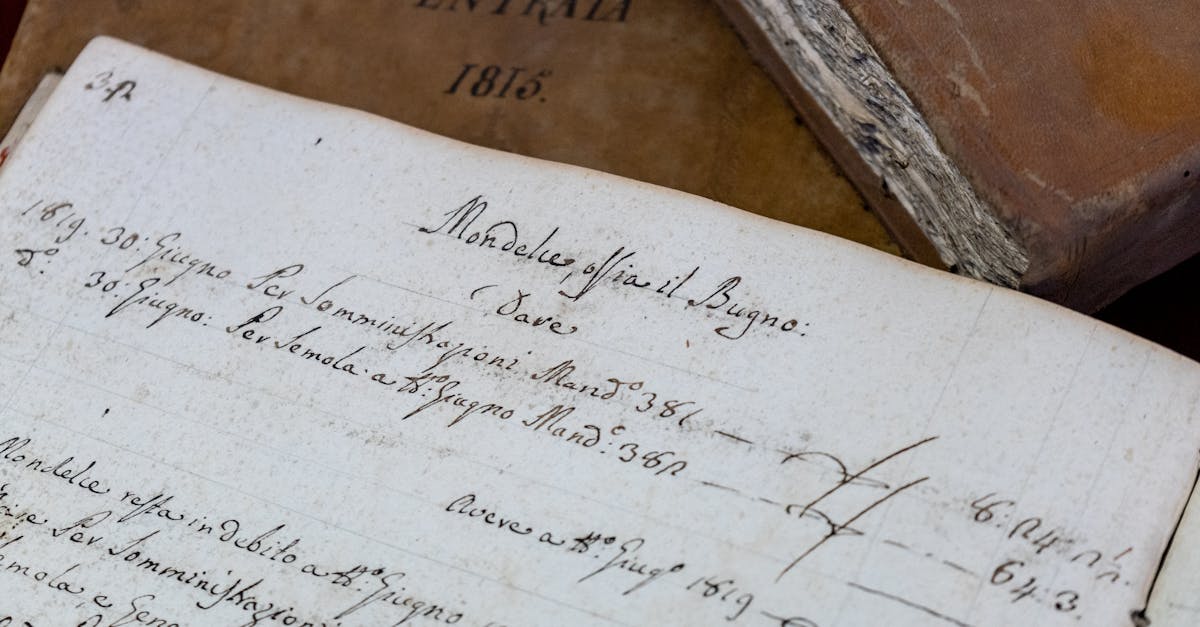 ENTRATA
1815.
Mondelce, ossia il Bugno:
Dare
1819. 30: Giugno Per Somministrazioni Mand.º 381
d.º 30. Giugno: Per Semola a tt.º Giugno Mand.º: 382
64. 3.
Avere a tt.º Giug.º 1819
Mondelce resta in debito a tt.º Giugno
Per Somministrazioni
Semola, e